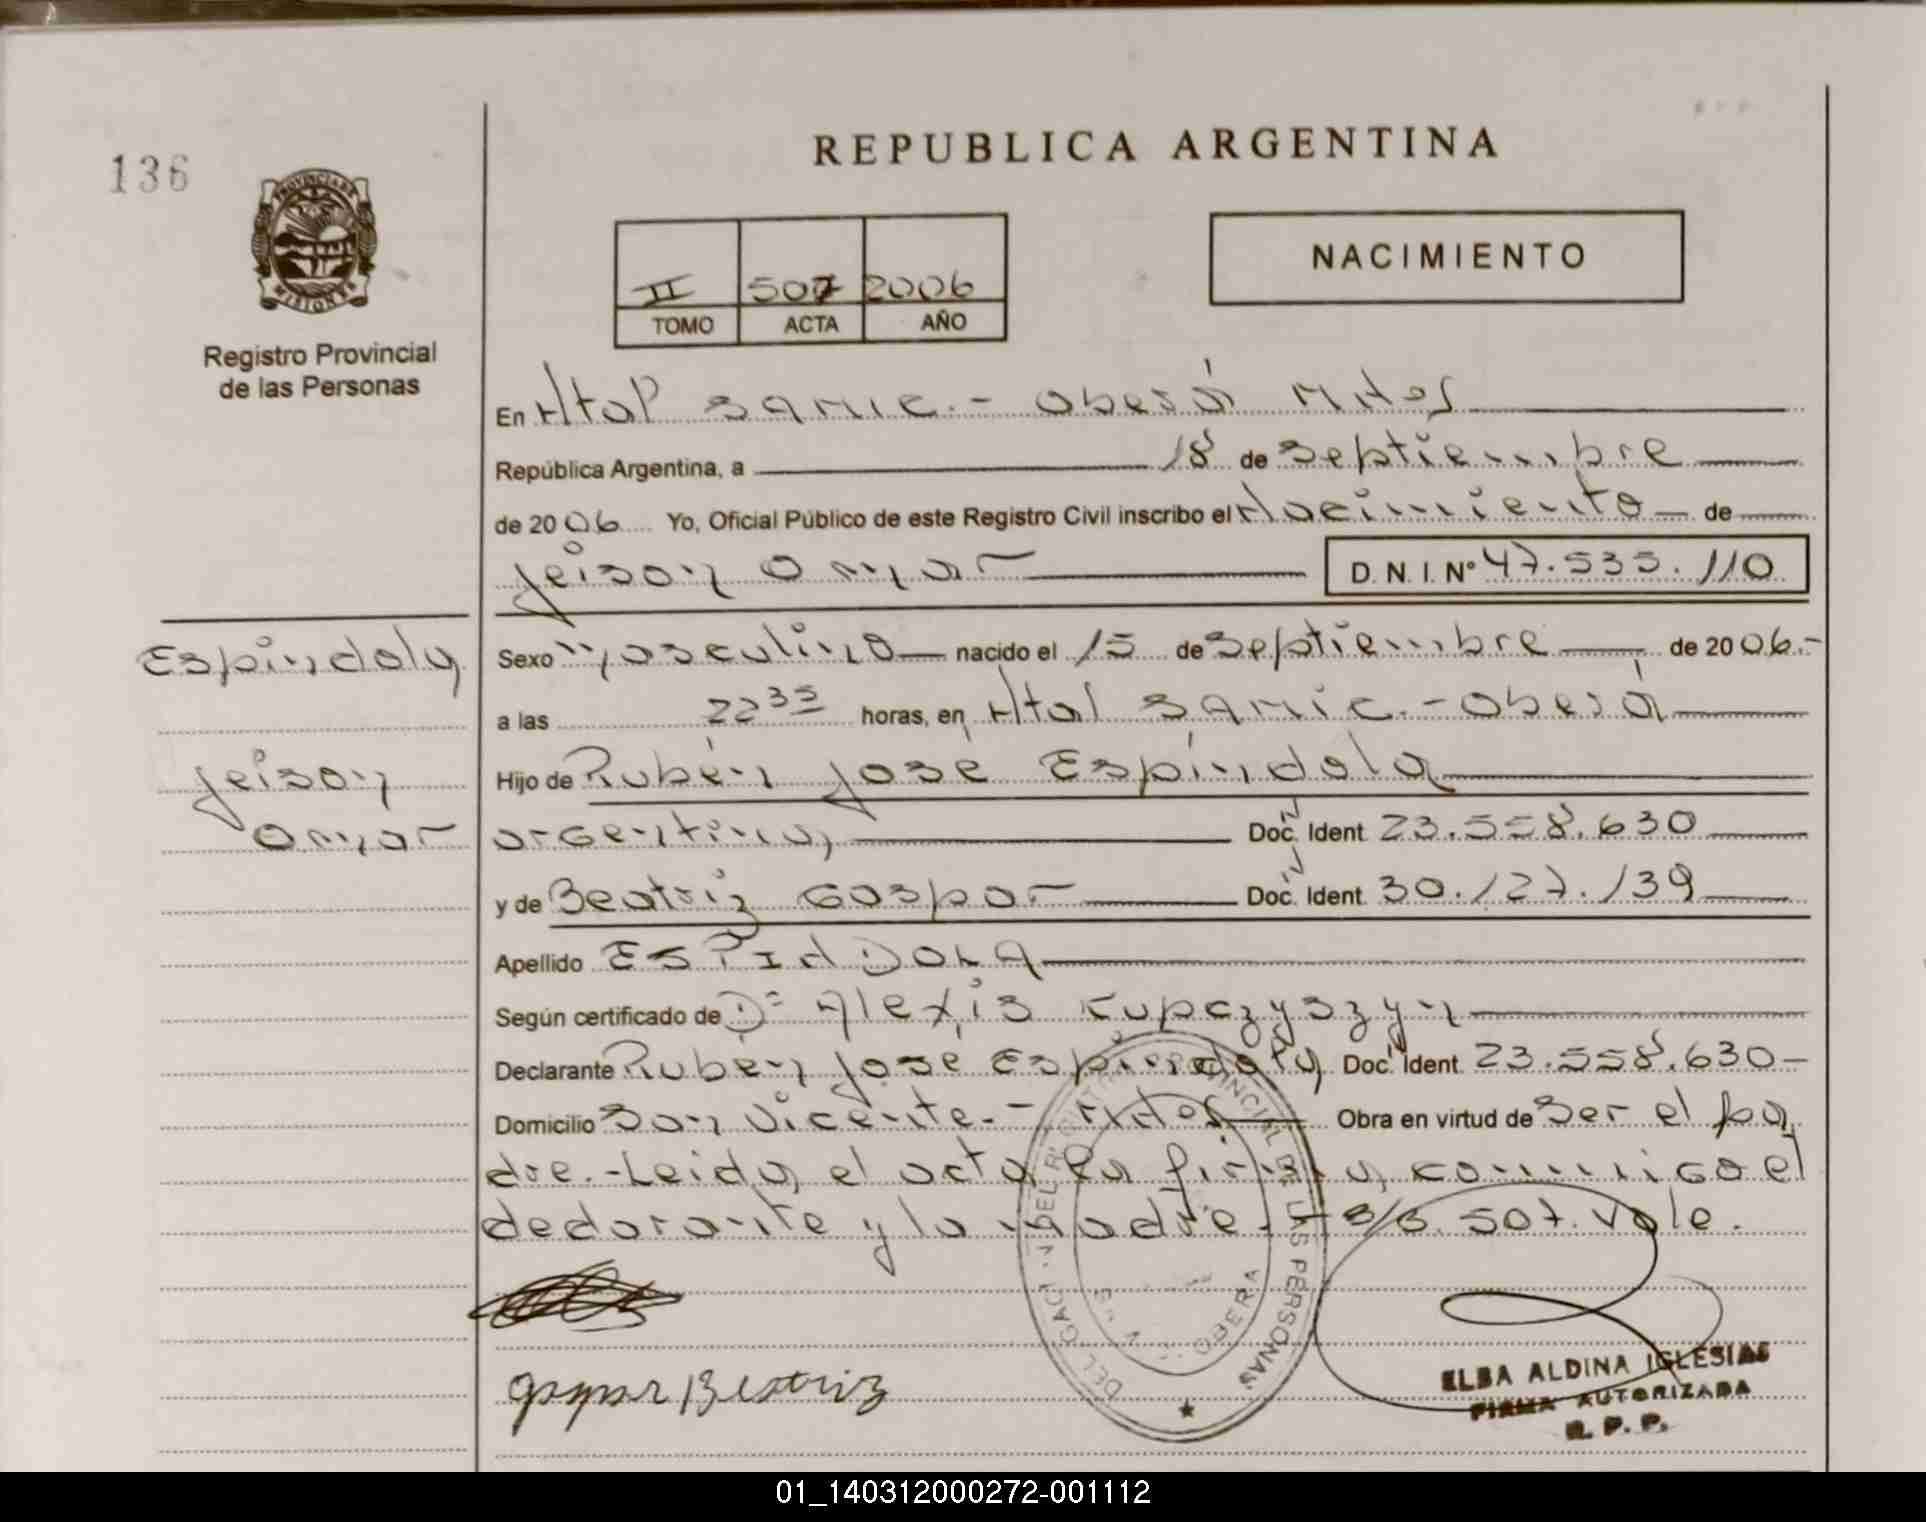 136
REPUBLICA ARGENTINA
PROVINCIA DE MISIONES
Registro Provincial
de las Personas
II 507 2006
TOMO ACTA AÑO
NACIMIENTO
En Htal SAMIC.- Oberá Mnes
República Argentina, a 18 de Septiembre
de 2006 Yo, Oficial Público de este Registro Civil inscribo el Nacimiento de
Jeison Omar D. N. I. Nº 47.535.110
Espindola
Jeison
Omar
Sexo Masculino nacido el 15 de Septiembre de 2006.-
a las 22 35 horas, en Htal SAMIC.-Oberá
Hijo de Rubén José Espíndola
argentina Doc. Ident. 23.558.630
y de Beatriz Gaspar Doc. Ident. 30.127.139
Apellido ESPINDOLA
Según certificado de Dr Alexis Kupczyszyn
Declarante Rubén José Espíndola Doc. Ident. 23.558.630-
Domicilio San Vicente.- Mnes Obra en virtud de Ser el pa
dre.-Leida el acta la firma conmigo el
declarante y la madre.- S/B. 507. Vale.
DEL REGISTRO PROVINCIAL DE LAS PERSONAS
OBERA
Gaspar Beatriz
ELBA ALDINA IGLESIAS
FIRMA AUTORIZADA
R. P. P.
01_140312000272-001112